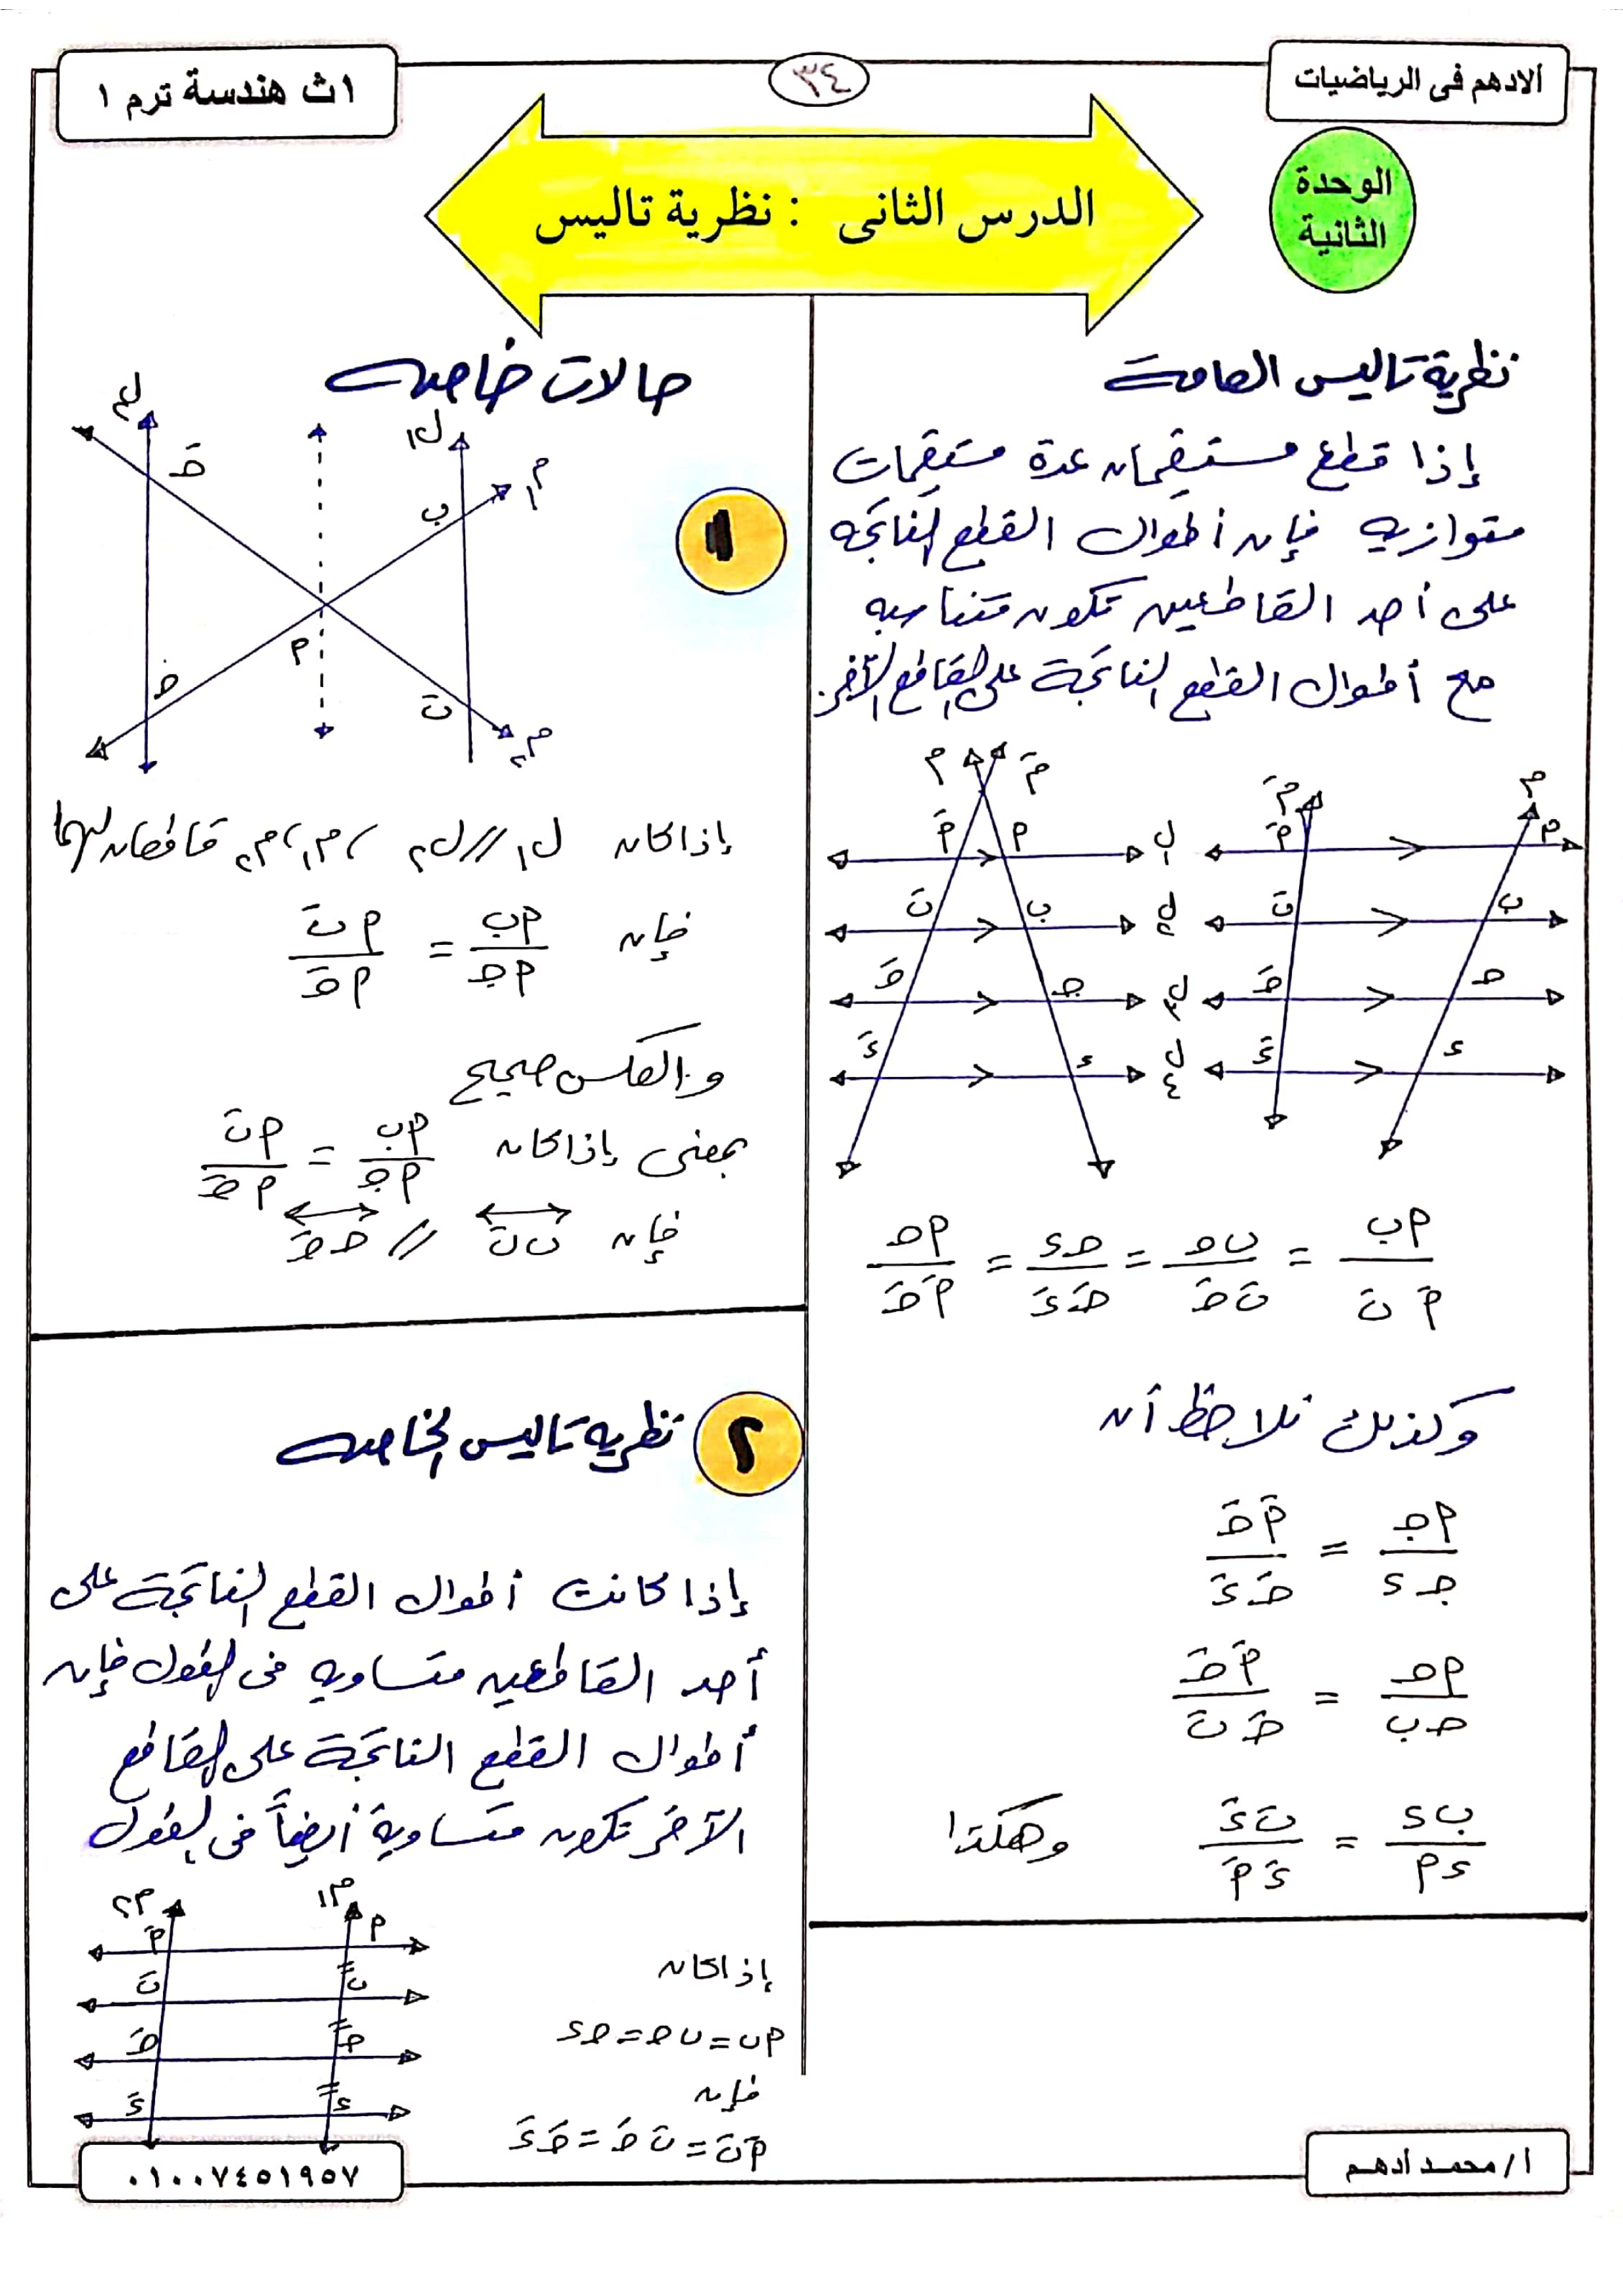 الادهم فى الرياضيات
٣٤
١ث هندسة ترم ١
الوحدة
الثانية
الدرس الثانى : نظرية تاليس
نظرية تاليس العامة
إذا قطع مستقيمان عدة مستقيمات
متوازية فإن أطوال القطع الناتجة
على أحد القاطعين تكون متناسبة
مع أطوال القطع الناتجة على القاطع الآخر.
م مَ
م مَ
أَ أ ل١ أَ أ
بَ ب ل٢ بَ ب
جَ ج ل٣ جَ ج
ءَ ء ل٤ ءَ ء
أب / أَ بَ = ب ج / بَ جَ = ج ء / جَ ءَ = أ ج / أَ جَ
وكذلك نلاحظ أن
أج / ج ء = أَ جَ / جَ ءَ
أج / ج ب = أَ جَ / جَ بَ
ب ء / ء أ = بَ ءَ / ءَ أَ وهكذا
حالات خاصة
١
ل٢ ل١
جَ
ب م١
أ
ج بَ
م٢
إذا كان ل١ // ل٢ ، م١ ، م٢ قاطعان لهما
فإن أب / أج = أ بَ / أ جَ
والعكس صحيح
بمعنى إذا كان أب / أج = أ بَ / أ جَ
فإن ب بَ // ج جَ
٢ نظرية تاليس الخاصة
إذا كانت أطوال القطع الناتجة على
أحد القاطعين متساوية فى الطول فإن
أطوال القطع الناتجة على القاطع
الآخر تكون متساوية أيضاً فى الطول
م٢ م١
أَ أ
بَ ب
جَ ج
ءَ ء
إذا كان
أب = ب ج = ج ء
فإن
أَ بَ = بَ جَ = جَ ءَ
٠١٠٠٧٤٥١٩٥٧
أ/ محمد أدهم